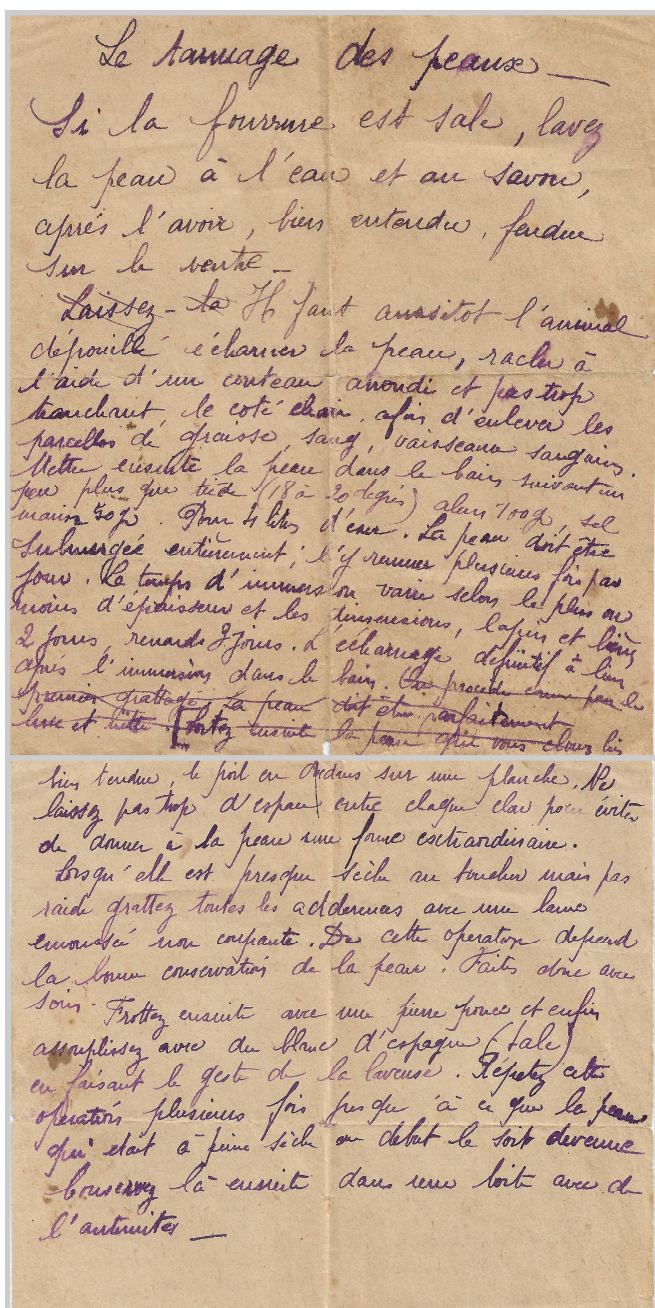 Le tannage des peaux —
Si la fourrure est sale, lavez
la peau à l'eau et au savon,
aprés l'avoir, bien entendu, fendue
sur le ventre —
Laissez-la Il faut aussitot l'animal
dépouillé écharner la peau, racler à
l'aide d'un couteau arrondi et pas trop
tranchant, le coté chair, afin d'enlever les
parcelles de graisse, sang, vaisseaux sanguins.
Mettre ensuite la peau dans le bain suivant un
peu plus que tiède (18 à 20 degrés) alun 700g, sel
marin 50g. Pour 4 litres d'eau. La peau doit être
submergée entièrement; l'y remuer plusieurs fois par
jour. Le temps d'immersion varie selon le plus ou
moins d'épaisseur et les dimensions, lapin et lièvre
2 jours, renards 3 jours. L'écharnage définitif à lieu
après l'immersion dans le bain. On procède comme pour le
premier grattage La peau doit etre parfaitement
lisse et nette. Sortez ensuite la peau que vous clouez bien
bien tendue, le poil en dedans sur une planche. Ne
laissez pas trop d'espace entre chaque clou pour éviter
de donner à la peau une forme extraordinaire.
Lorsqu'elle est presque sèche au toucher mais pas
raide grattez toutes les avec une lame
emoussée non coupante. De cette operation depend
la bonne conservation de la peau. Faites donc avec
soin. Frottez ensuite avec une pierre ponce et enfin
assouplissez avec du blanc d'espagne (talc)
en faisant le geste de la laveuse. Répetez cette
operation plusieurs fois jusque à ce que la peau
qui etait à peine sèche au debut le soit devenue
Conservez là ensuite dans une boite avec de
l'antimites —